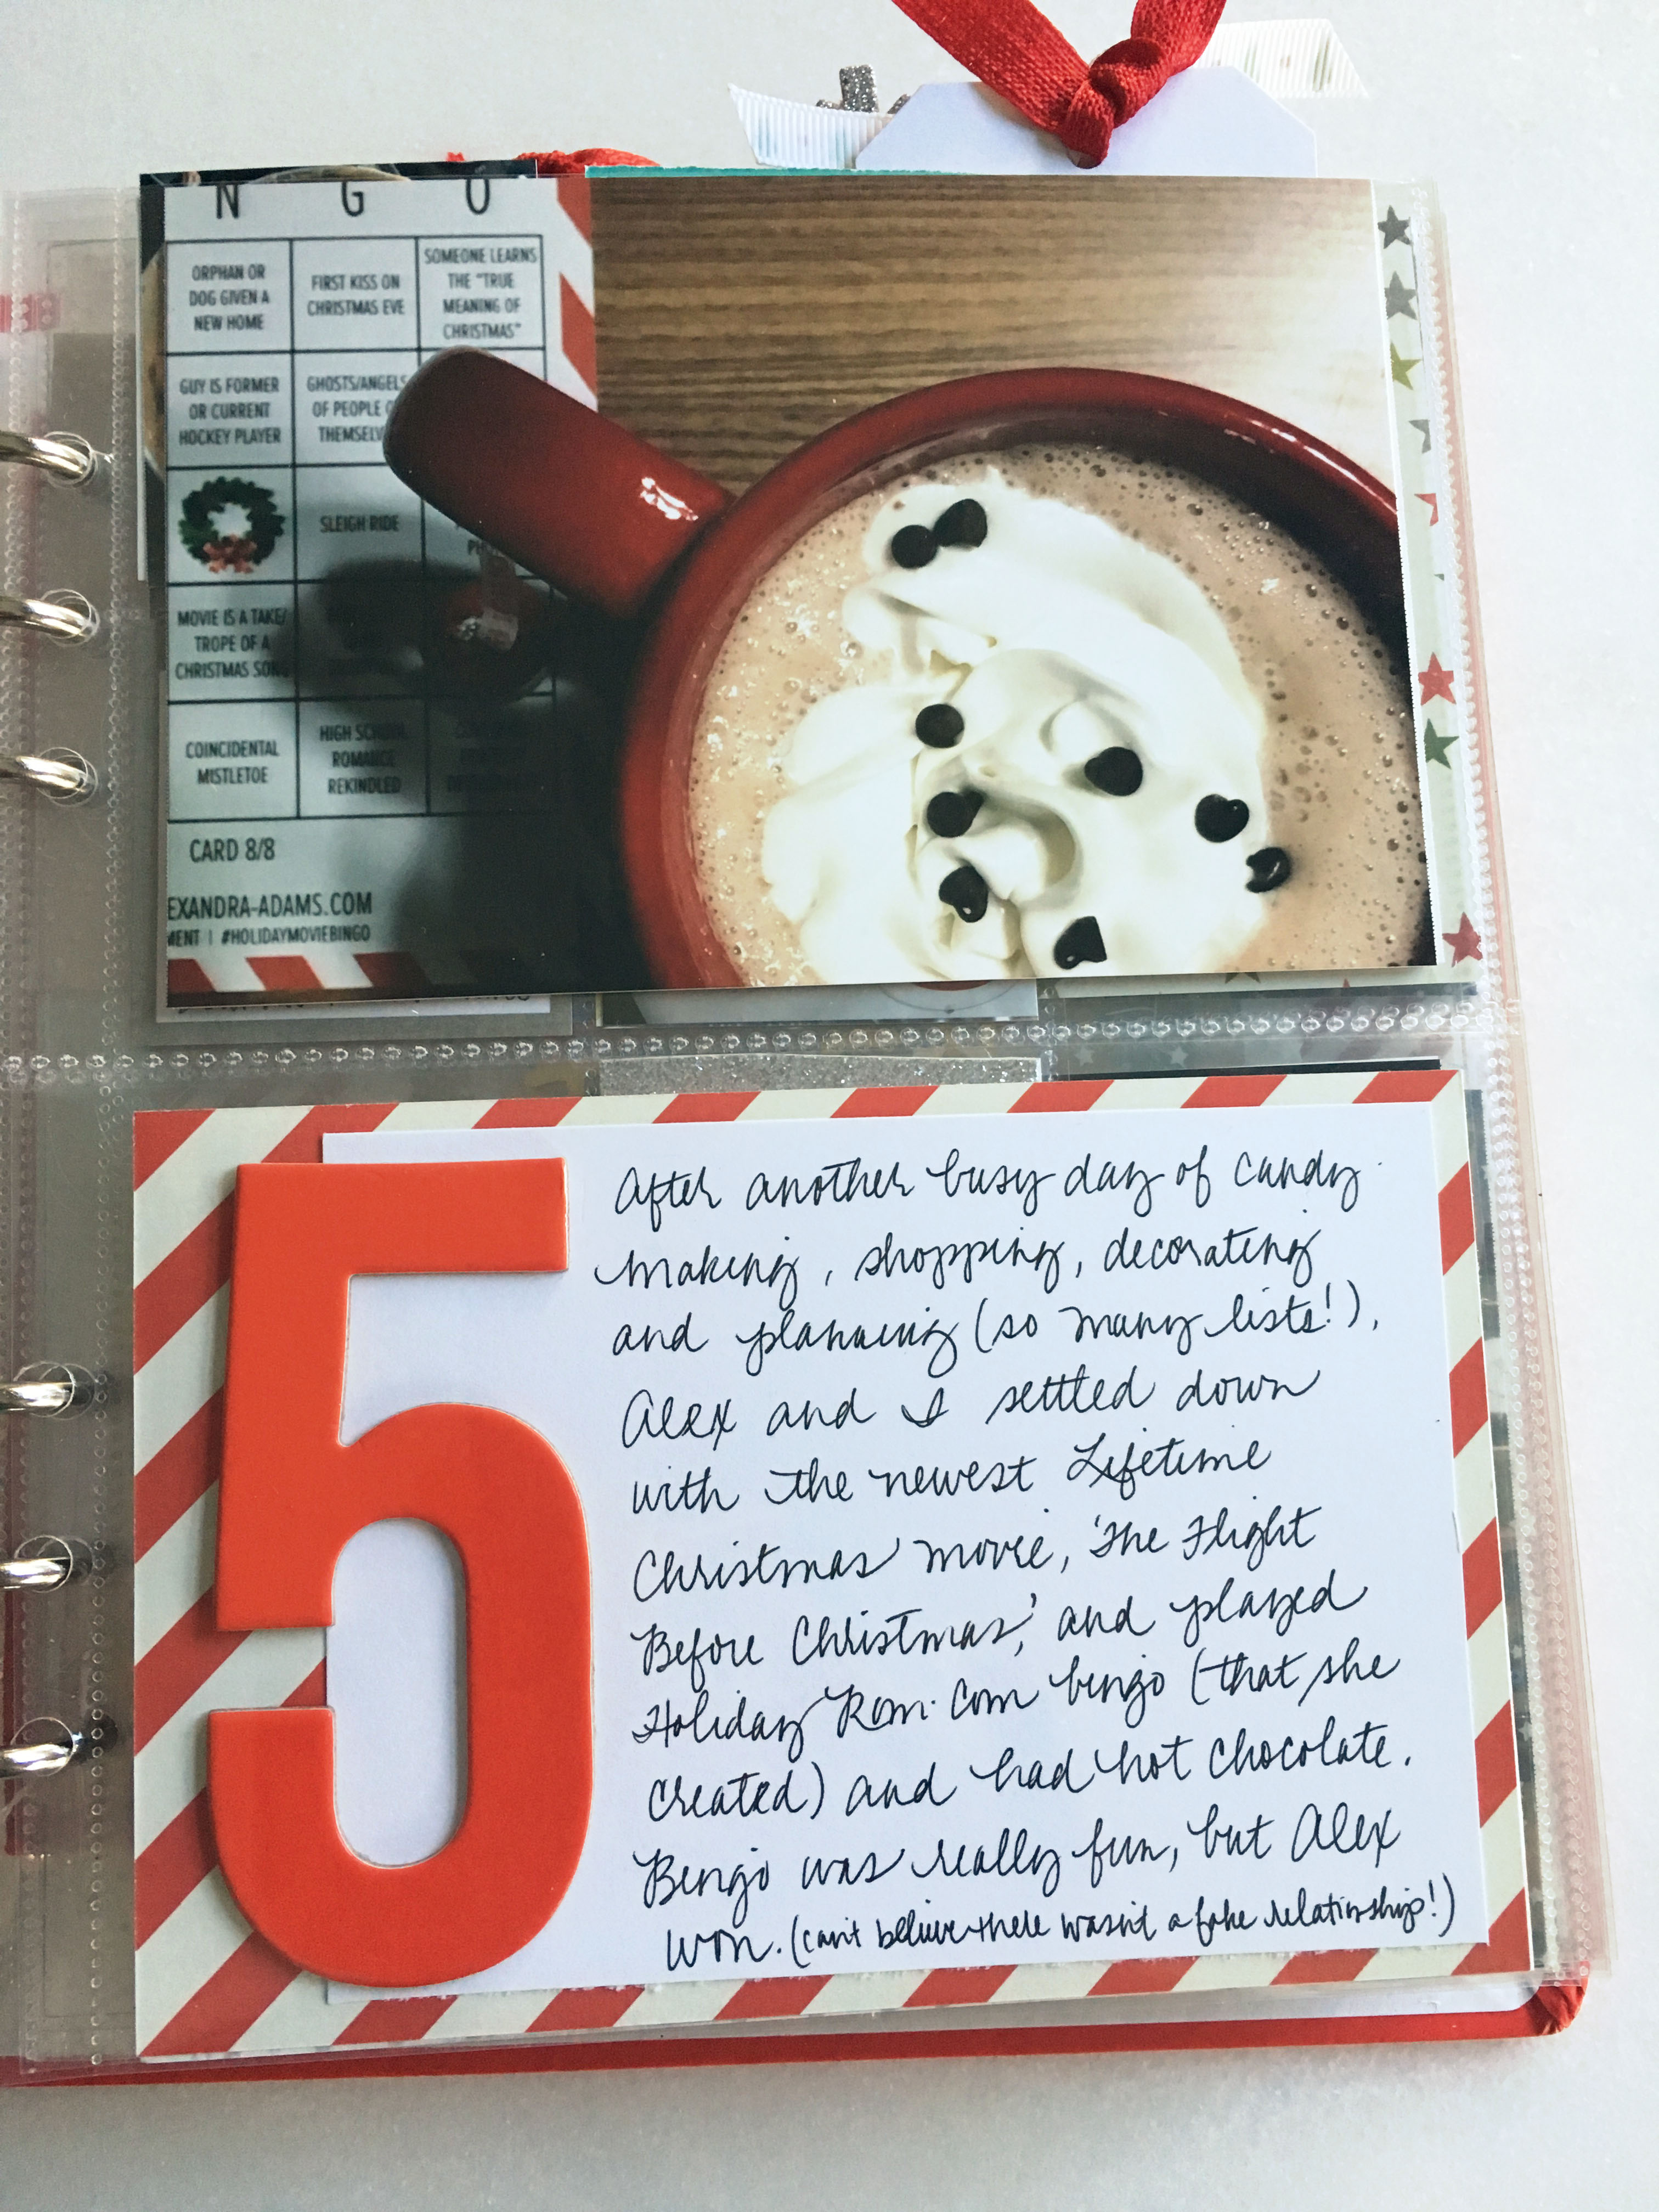 N G O
ORPHAN OR
DOG GIVEN A
NEW HOME
FIRST KISS ON
CHRISTMAS EVE
SOMEONE LEARNS
THE "TRUE
MEANING OF
CHRISTMAS"
GUY IS FORMER
OR CURRENT
HOCKEY PLAYER
GHOSTS/ANGELS
OF PEOPLE
SLEIGH RIDE
MOVIE IS A TAKE/
TROPE OF A
CHRISTMAS SONG
COINCIDENTAL
MISTLETOE
HIGH SCHOOL
ROMANCE
REKINDLED
CARD 8/8
EXANDRA-ADAMS.COM
MENT | #HOLIDAYMOVIEBINGO
5
After another busy day of candy
making, shopping, decorating
and planning (so many lists!),
Alex and I settled down
with the newest Lifetime
Christmas movie, 'The Flight
Before Christmas,' and played
Holiday Rom-Com bingo (that she
created) and had hot chocolate.
Bingo was really fun, but Alex
won. (can't believe there wasn't a fake relationship!)